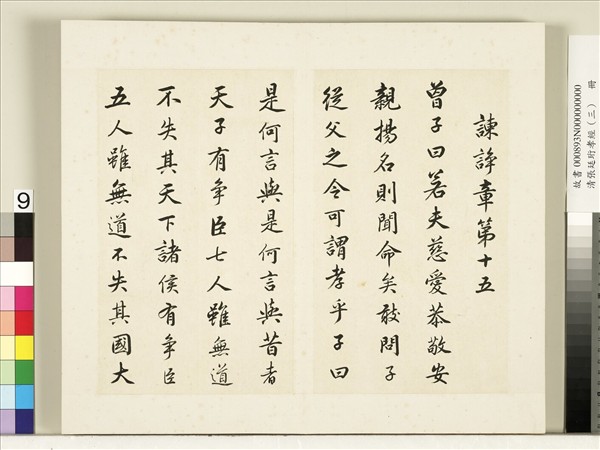 諫諍章第十五
曾子曰若夫慈愛恭敬安
親揚名則聞命矣敢問子
從父之令可謂孝乎子曰
是何言與是何言與昔者
天子有爭臣七人雖無道
不失其天下諸侯有爭臣
五人雖無道不失其國大
故書 000893N000000000
清張廷珩孝經（三） 冊
9